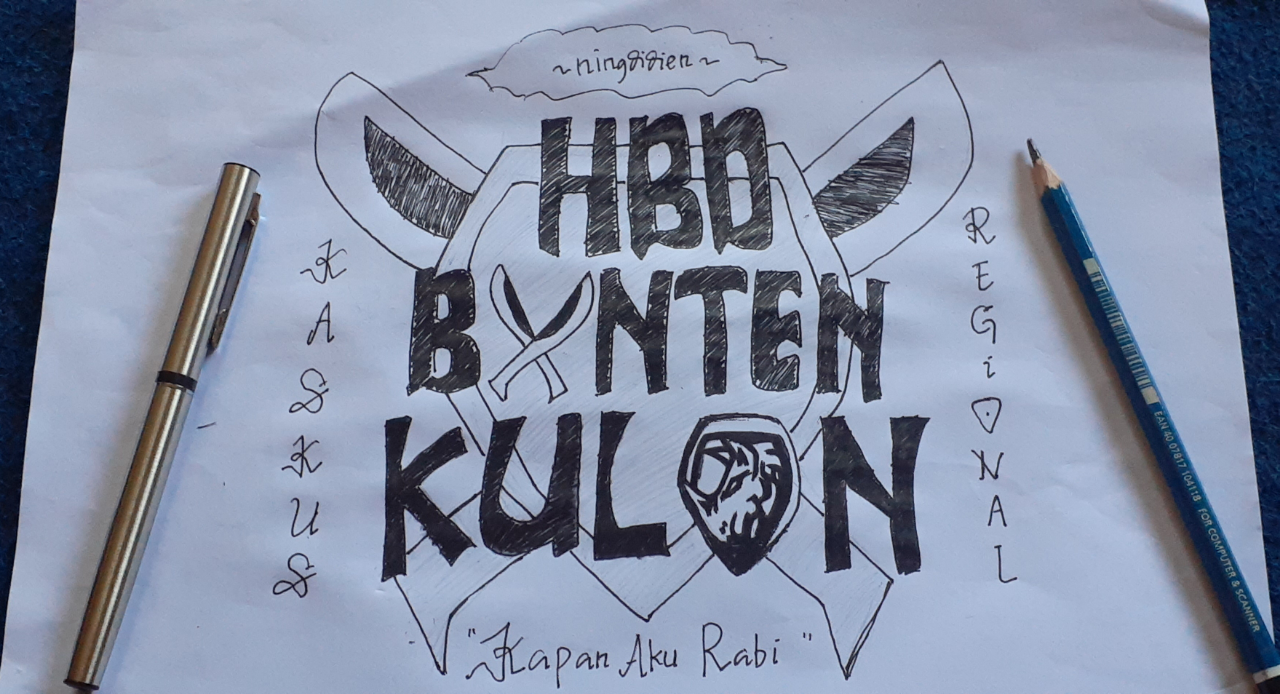 ~ningdidien~
HBD
BANTEN
KULON
KASKUS
REGiONAL
"Kapan Aku Rabi"
EAN 40 07817 104118 FOR COMPUTER & SCANNER